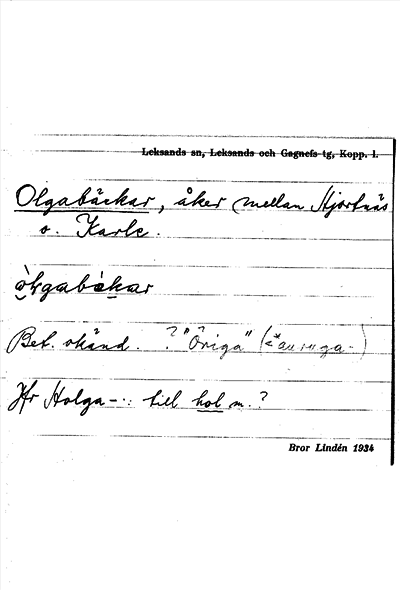 Leksands sn, Leksands och Gagnefs tg, Kopp. l.
Olgabäckar, åker mellan Hjortnäs
o. Karlc.
òlgabàkar
Bet. okänd. ? "Öriga" (<*auruga-)
Jfr Holga- : till hol m. ?
Bror Lindén 1934